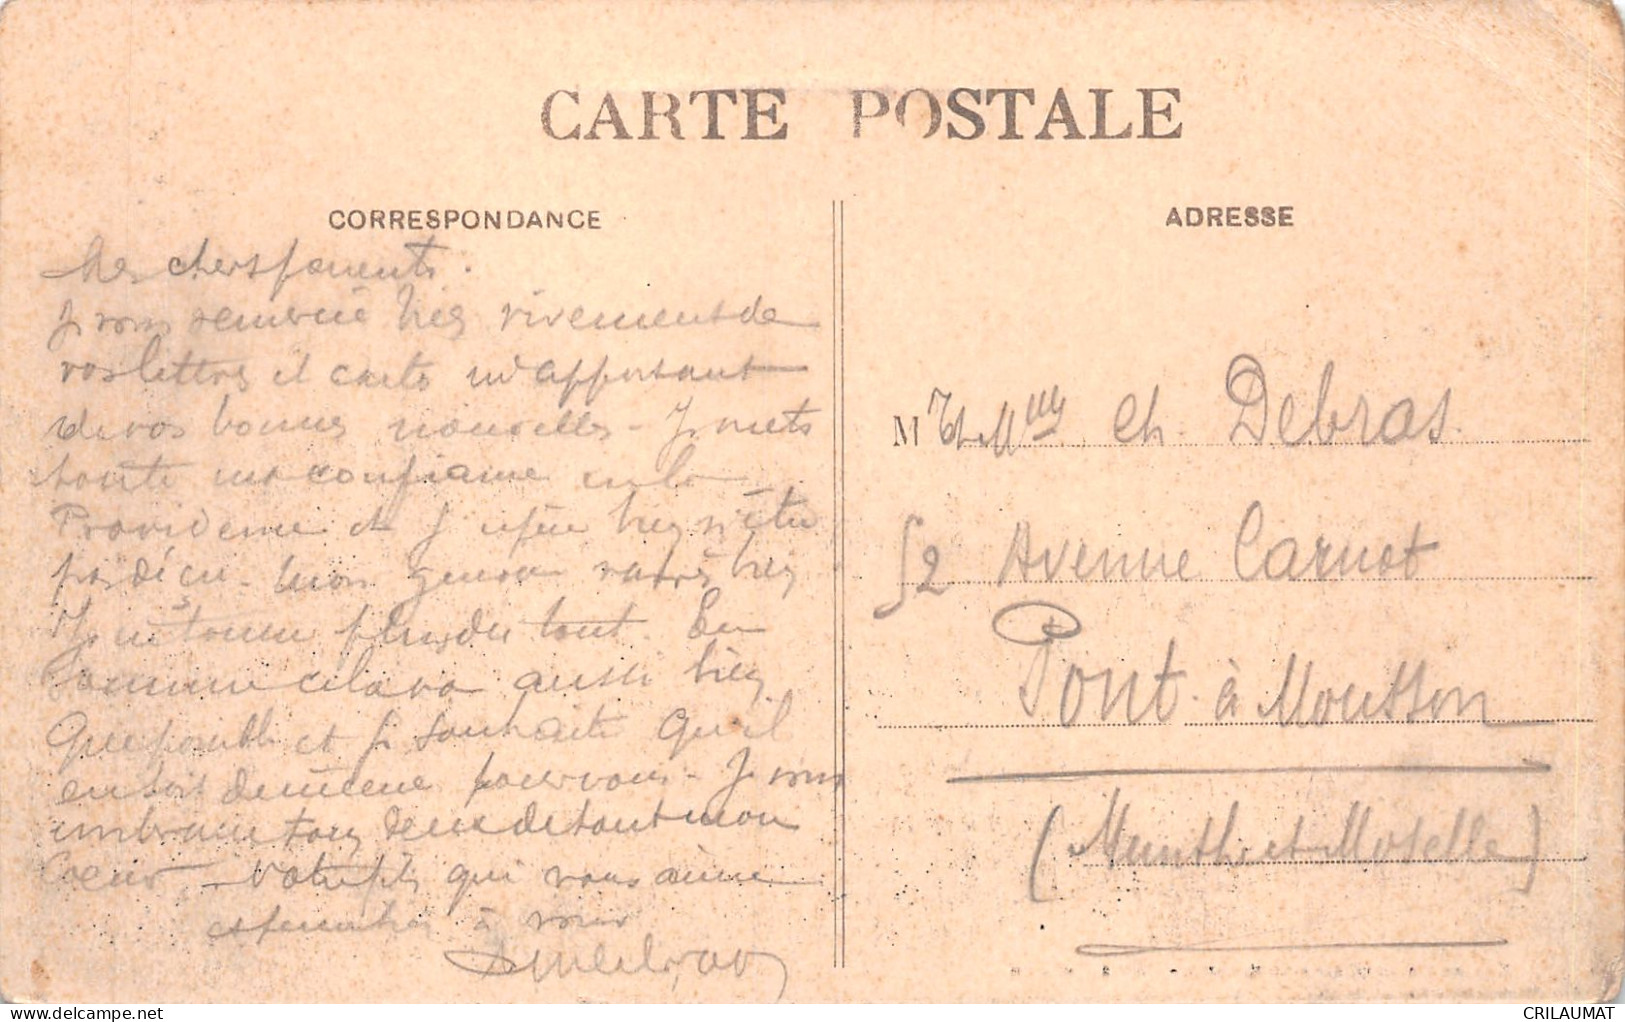 CARTE POSTALE
CORRESPONDANCE
ADRESSE
Mes chers parents.
Je vous remercie bien vivement de
vos lettres et carte m'apportant
de vos bonnes nouvelles - Je mets
toute ma confiance en la
Providence et j'espère bien n'être
pas déçu - Mon genou va très bien
Je n'y touche plus du tout. En
somme cela va aussi bien
que possible et je souhaite qu'il
en soit de même pour vous - Je vous
embrasse tous deux de tout mon
Coeur. Votre fils qui vous aime
et à vous
Debras
M ch. Debras.
52 Avenue Carnot
Pont-à-Mousson
(Meurthe et Moselle)
CRILAUMAT